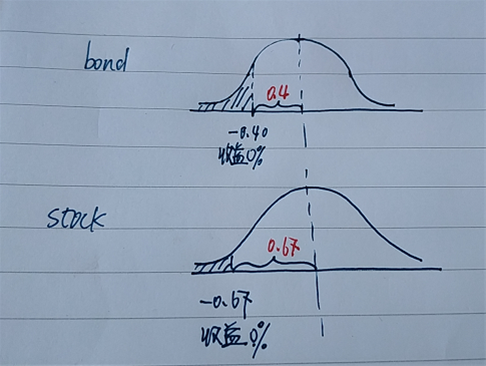 bond
0.4
-0.40
收益0%
stock
0.67
-0.67
收益0%